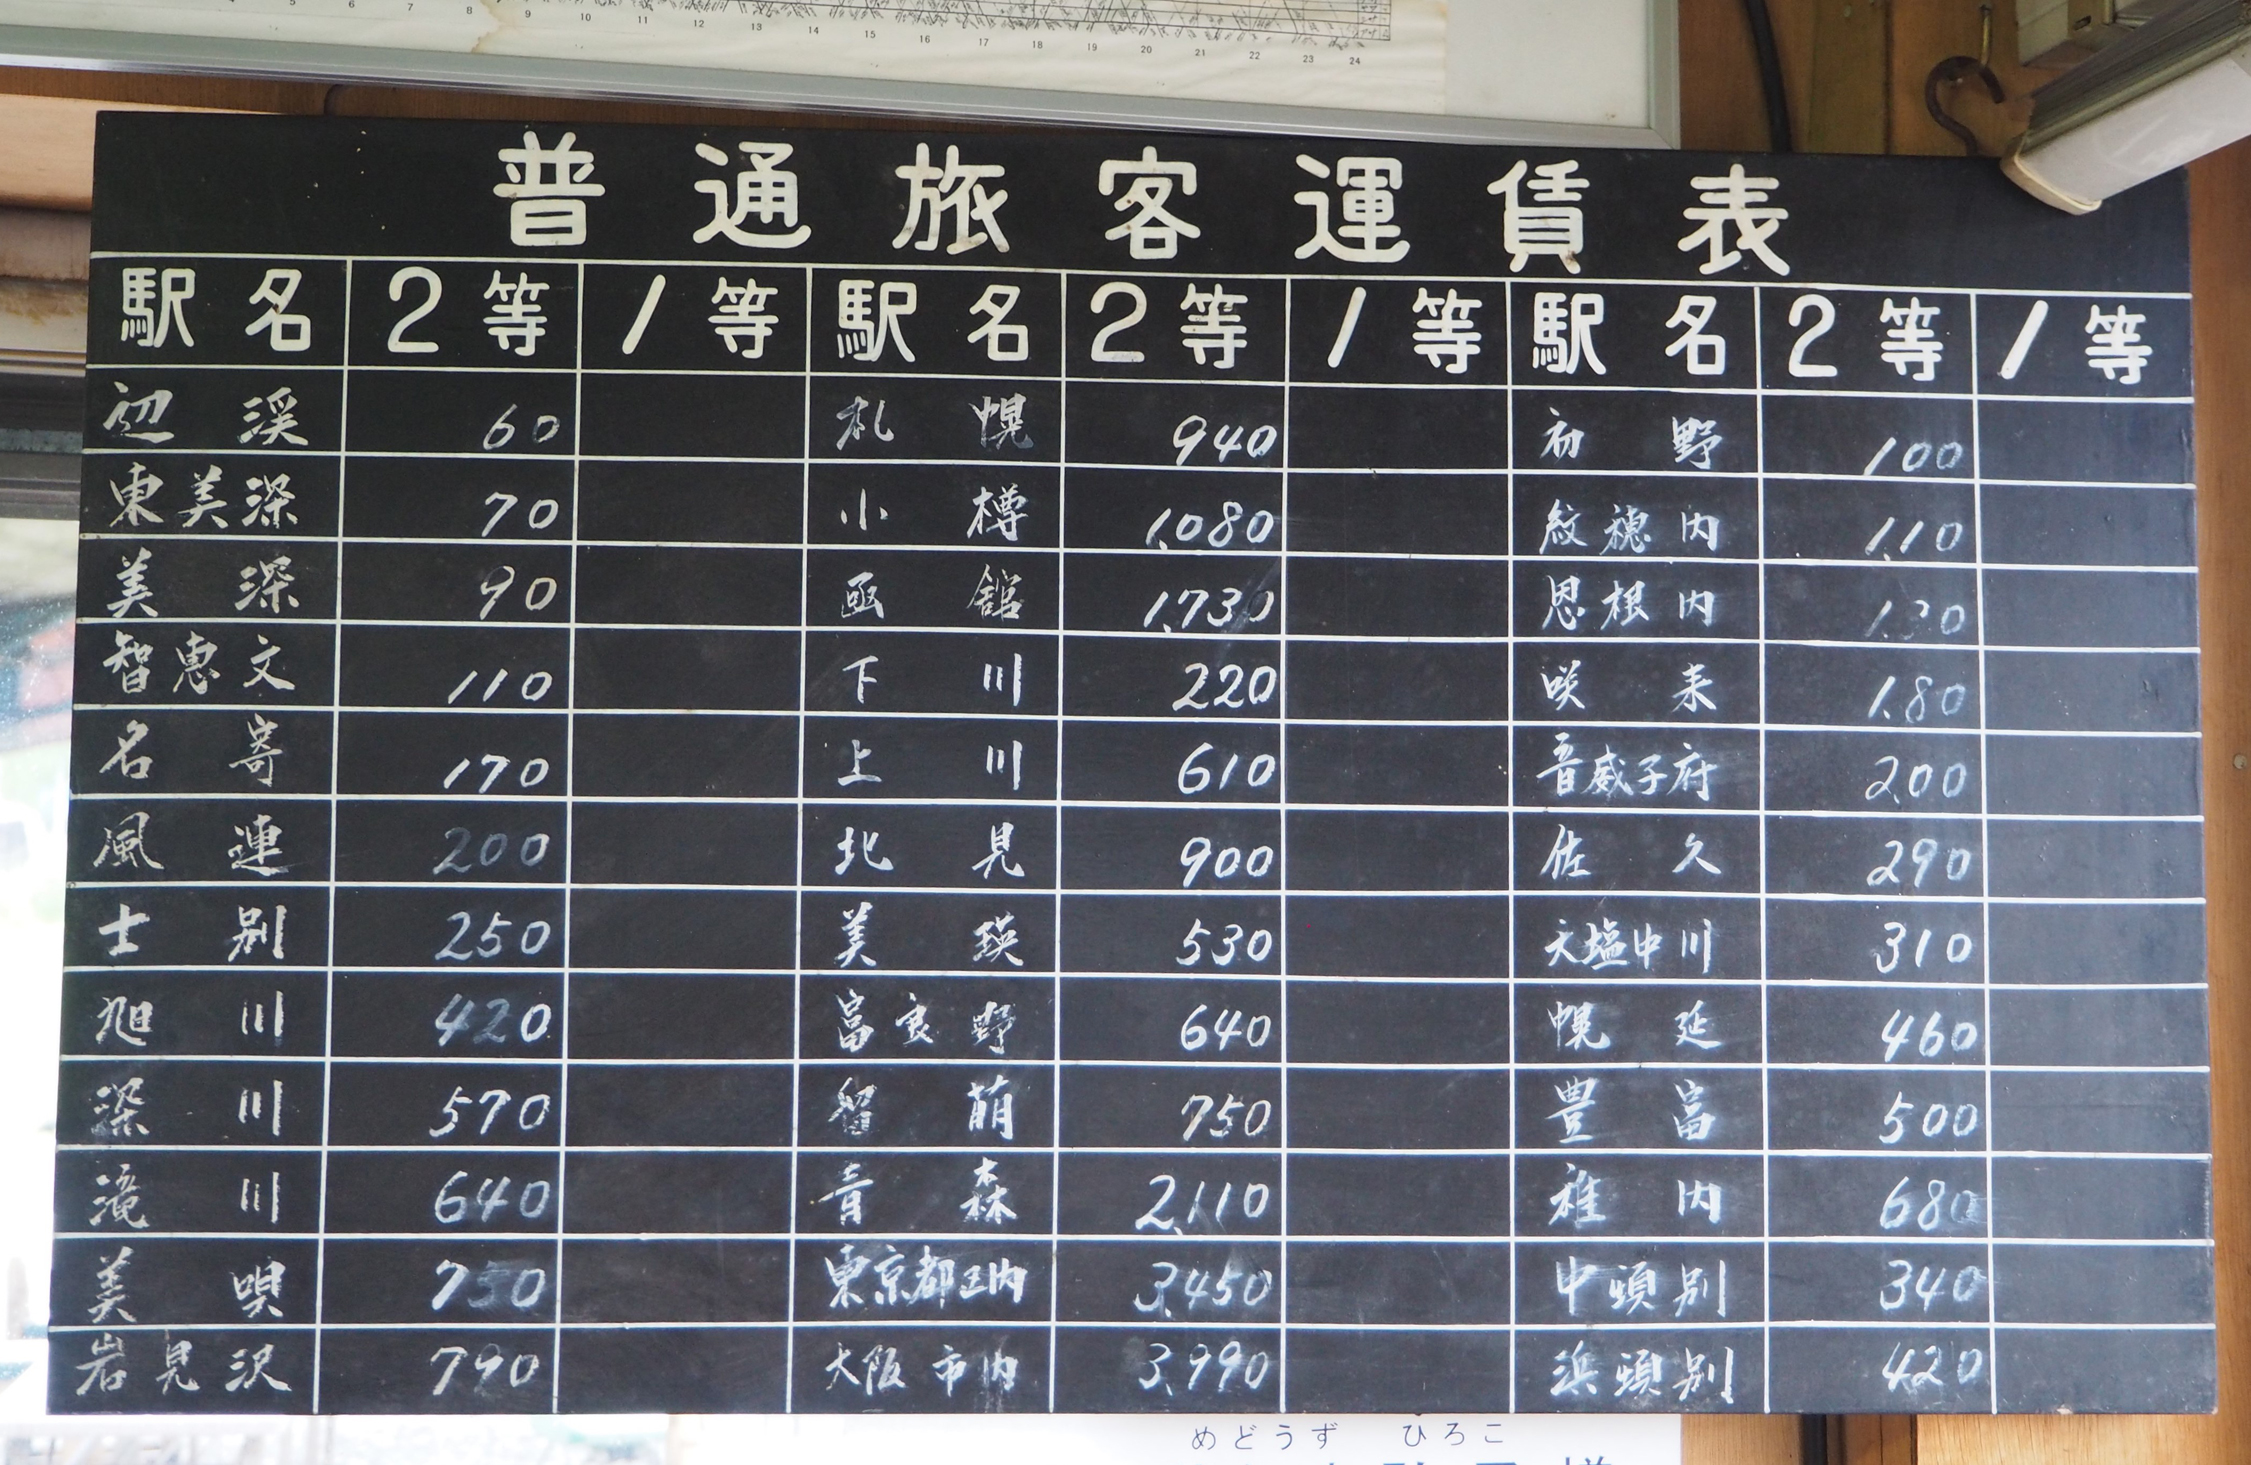 4 5 6 7 8 9 10 11 12 13 14 15 16 17 18 19 20 21 22 23 24
普通旅客運賃表
駅名 2等 1等 駅名 2等 1等 駅名 2等 1等
辺渓 60 札幌 940 初野 100
東美深 70 小樽 1,080 紋穂内 110
美深 90 函館 1,730 恩根内 130
智恵文 110 下川 220 咲来 180
名寄 170 上川 610 音威子府 200
風連 200 北見 900 佐久 290
士別 250 美瑛 530 天塩中川 310
旭川 420 富良野 640 幌延 460
深川 570 留萌 750 豊富 500
滝川 640 青森 2,110 稚内 680
美唄 750 東京都区内 3,450 中頓別 340
岩見沢 790 大阪市内 3,990 浜頓別 420
めどうず ひろこ